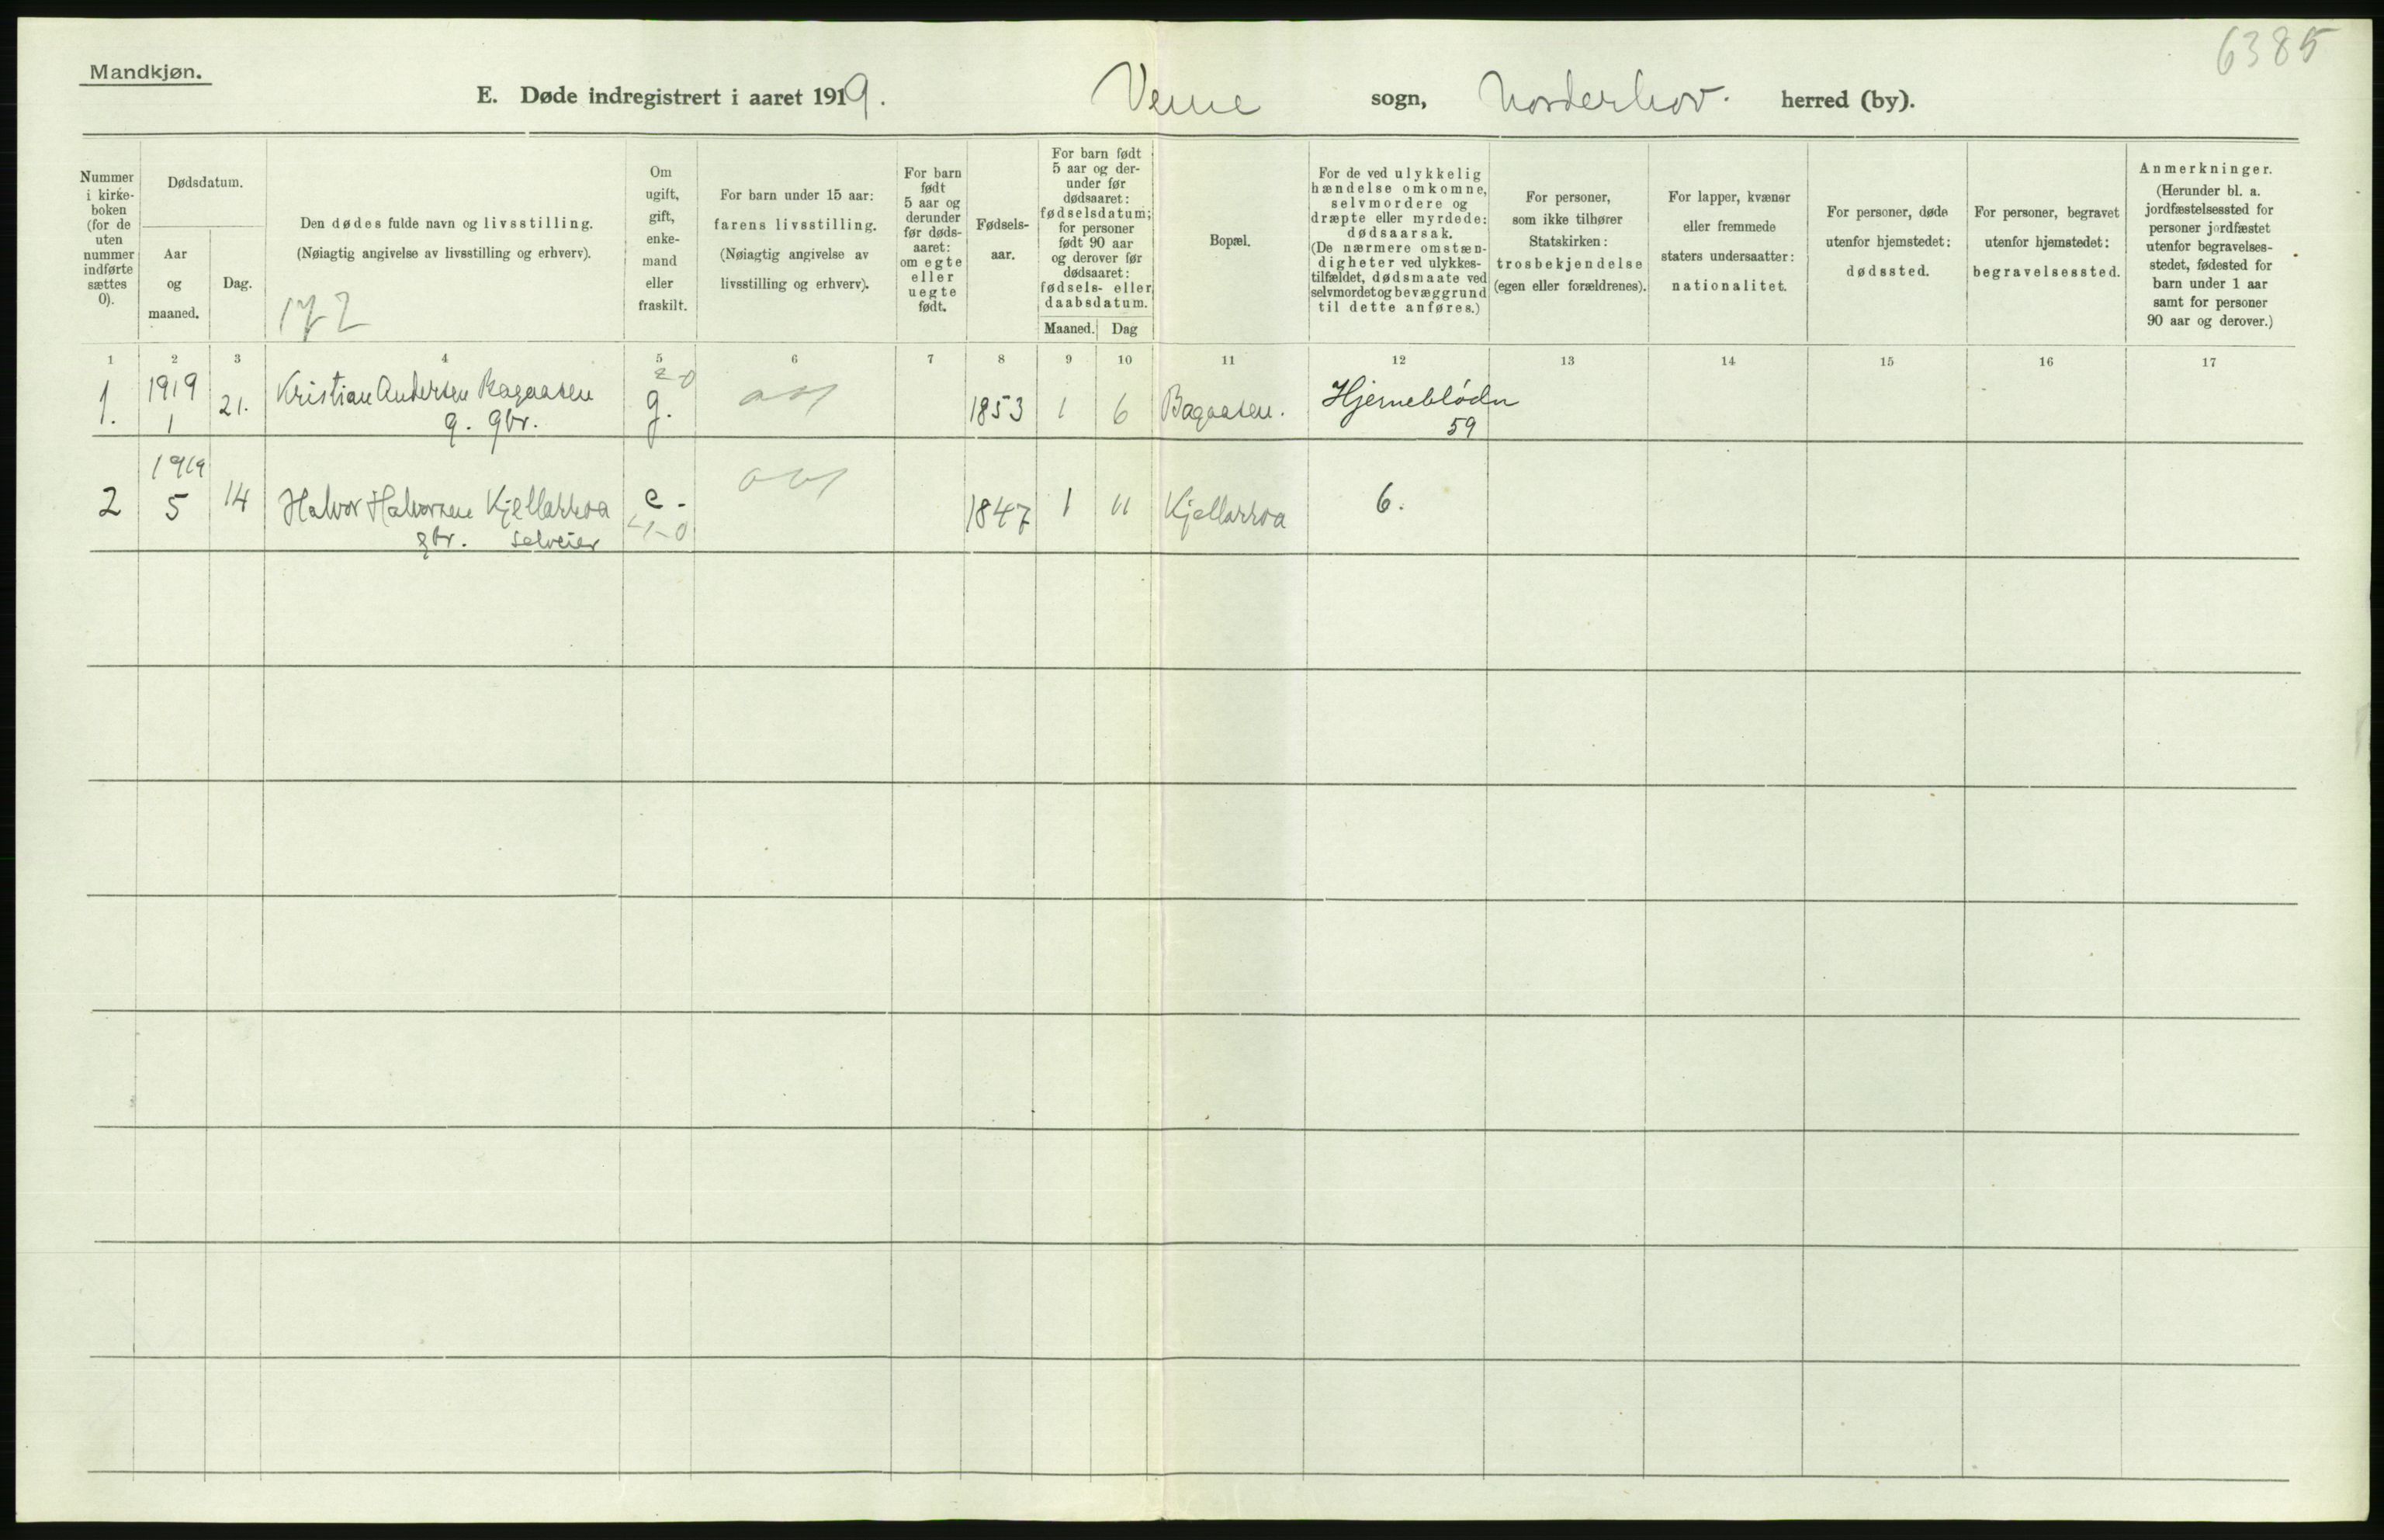 6385
Mandkjøn.
E. Døde indregistrert i aaret 1919. Veme sogn, Norderhov. herred (by).
Nummer i kirke-boken (for de uten nummer indførte sættes 0).
Dødsdatum.
Aar og maaned.
Dag.
Den dødes fulde navn og livsstilling.
(Nøiagtig angivelse av livsstilling og erhverv).
172
Om ugift, gift, enke-mand eller fraskilt.
For barn under 15 aar:
farens livsstilling.
(Nøiagtig angivelse av livsstilling og erhverv).
For barn født 5 aar og derunder før døds-aaret: om egte eller uegte født.
Fødsels-aar.
For barn født 5 aar og der-under før dødsaaret: fødselsdatum; for personer født 90 aar og derover før dødsaaret: fødsels- eller daabsdatum.
Maaned. Dag
Bopæl.
For de ved ulykkelig hændelse omkomne, selvmordere og dræpte eller myrdede: dødsaarsak. (De nærmere omstæn-digheter ved ulykkes-tilfældet, dødsmaate ved selvmordet og bevæggrund til dette anføres.)
For personer, som ikke tilhører Statskirken: trosbekjendelse (egen eller forældrenes).
For lapper, kvæner eller fremmede staters undersaatter: nationalitet.
For personer, døde utenfor hjemstedet: dødssted.
For personer, begravet utenfor hjemstedet: begravelsessted.
Anmerkninger.
(Herunder bl. a. jordfæstelsessted for personer jordfæstet utenfor begravelses-stedet, fødested for barn under 1 aar samt for personer 90 aar og derover.)
1 2 3 4 5 6 7 8 9 10 11 12 13 14 15 16 17
1. 1919 1 21. Kristian Andersen Bagaasen g. 1853 1 6 Bagaasen. Hjerneblødn
g. gbr. 59
2 1919 5 14 Halvor Halvorsen e. 1847 1 11 6.
gbr. selveier